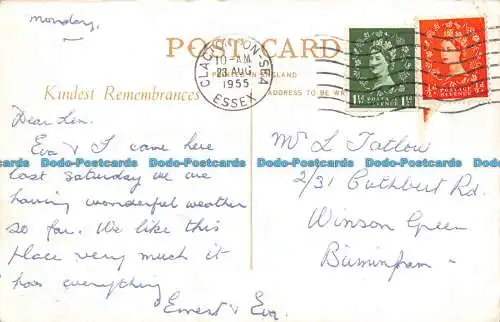 Monday,
POST CARD
PRINTED IN ENGLAND
Kindest Remembrances
ADDRESS TO BE WR
CLACTON-ON-SEA
10-AM
23 AUG
1955
ESSEX
POSTAGE REVENUE
1½D 1½D
POSTAGE REVENUE
½D ½D
Dear Len.
Eva & I came here
last Saturday we are
having wonderful weather
so far. We like this
place very much it
has everything
Ernest & Eva.
Mr L Tatlow
2/31 Cuthbert Rd.
Winson Green
Birmingham.
Dodo-Postcards Dodo-Postcards Dodo-Postcards Dodo-Postcards
Dodo-Postcards Dodo-Postcards Dodo-Postcards Dodo-Postcards